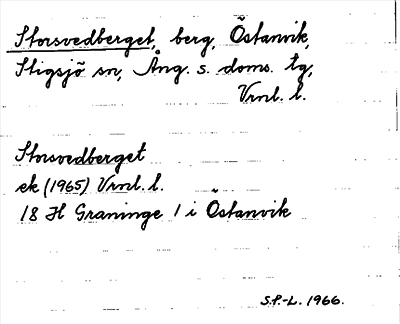 Storsvedberget, berg, Östanvik,
Stigsjö sn, Ång. s. doms. tg,
Vrnl. l.
Storsvedberget
ek (1965) Vrnl. l.
18 H Graninge 1 i Östanvik
S.P.-L. 1966.